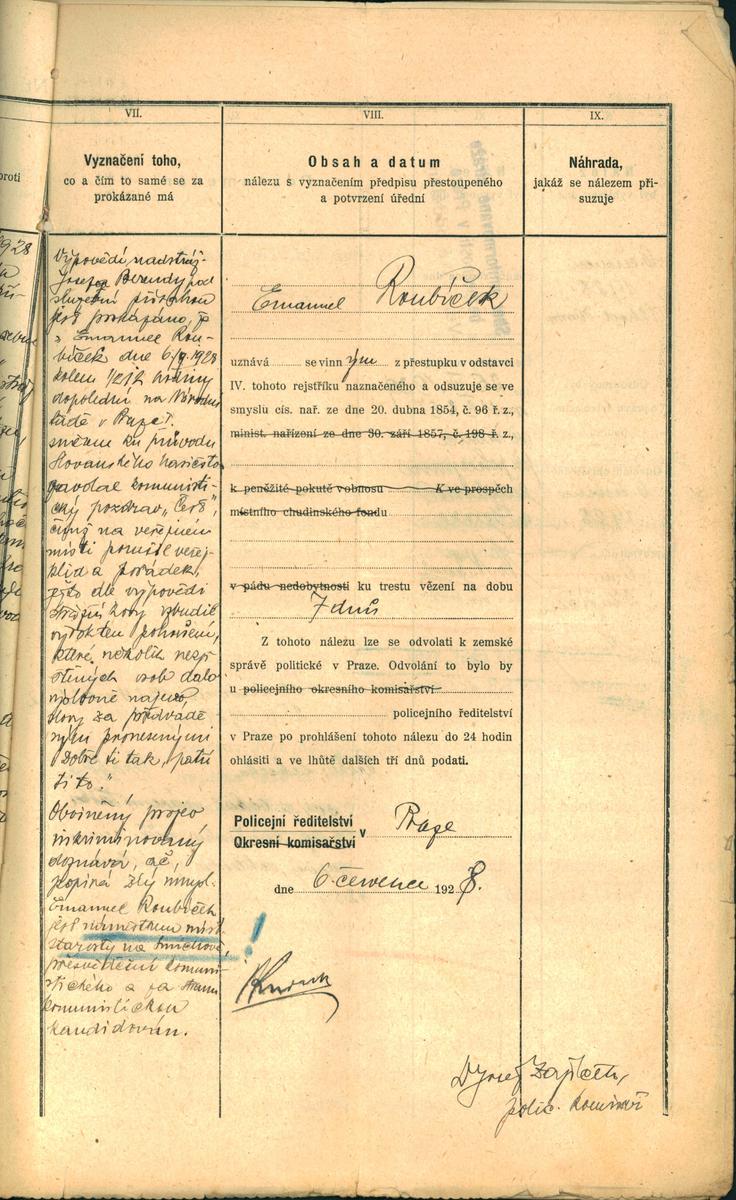 VII.
Vyznačení toho,
co a čím to samé se za
prokázané má
Výpovědí nadstráž.
Josefa Berendy pod
služební přísahou
jest prokázáno, že
Emanuel Rou-
bíček dne 6/7 1928
kolem 1/2 12 hodiny
dopolední na Národní
třídě v Praze I.
směrem ku průvodu
Slovanského hasičstva
zavolal komunisti-
cký pozdrav „Čest",
čímž na veřejném
místi porušil veřej.
klid a pořádek,
ježto dle výpovědi
vzbudil
výrok ten pohoršení,
které několik nezji-
štěných osob dalo
najevo
slovy za předvádě-
ným pronesenými
„Dobře ti tak, patří
ti to."
Obviněný projev
inkriminovaný
doznává, ač
popírá zlý úmysl.
Emanuel Roubíček
jest náměstkem míst.
starosty na Smíchově,
přesvědčení komuni-
stického a za stranu
komunistickou
kandidován.
VIII.
Obsah a datum
nálezu s vyznačením předpisu přestoupeného
a potvrzení úřední
Emanuel Roubíček
uznává se vinným z přestupku v odstavci
IV. tohoto rejstříku naznačeného a odsuzuje se ve
smyslu cís. nař. ze dne 20. dubna 1854, č. 96 ř. z.,
minist. nařízení ze dne 30. září 1857, č. 198 ř. z.,
k peněžité pokutě vobnosu K ve prospěch
místního chudinského fondu
v pádu nedobytnosti ku trestu vězení na dobu
7 dnů
Z tohoto nálezu lze se odvolati k zemské
správě politické v Praze. Odvolání to bylo by
u policejního okresního komisařství
policejního ředitelství
v Praze po prohlášení tohoto nálezu do 24 hodin
ohlásiti a ve lhůtě dalších tří dnů podati.
Policejní ředitelství
Okresní komisařství v Praze
dne 6. července 1928.
IX.
Náhrada,
jakáž se nálezem při-
suzuje
polic. komisař